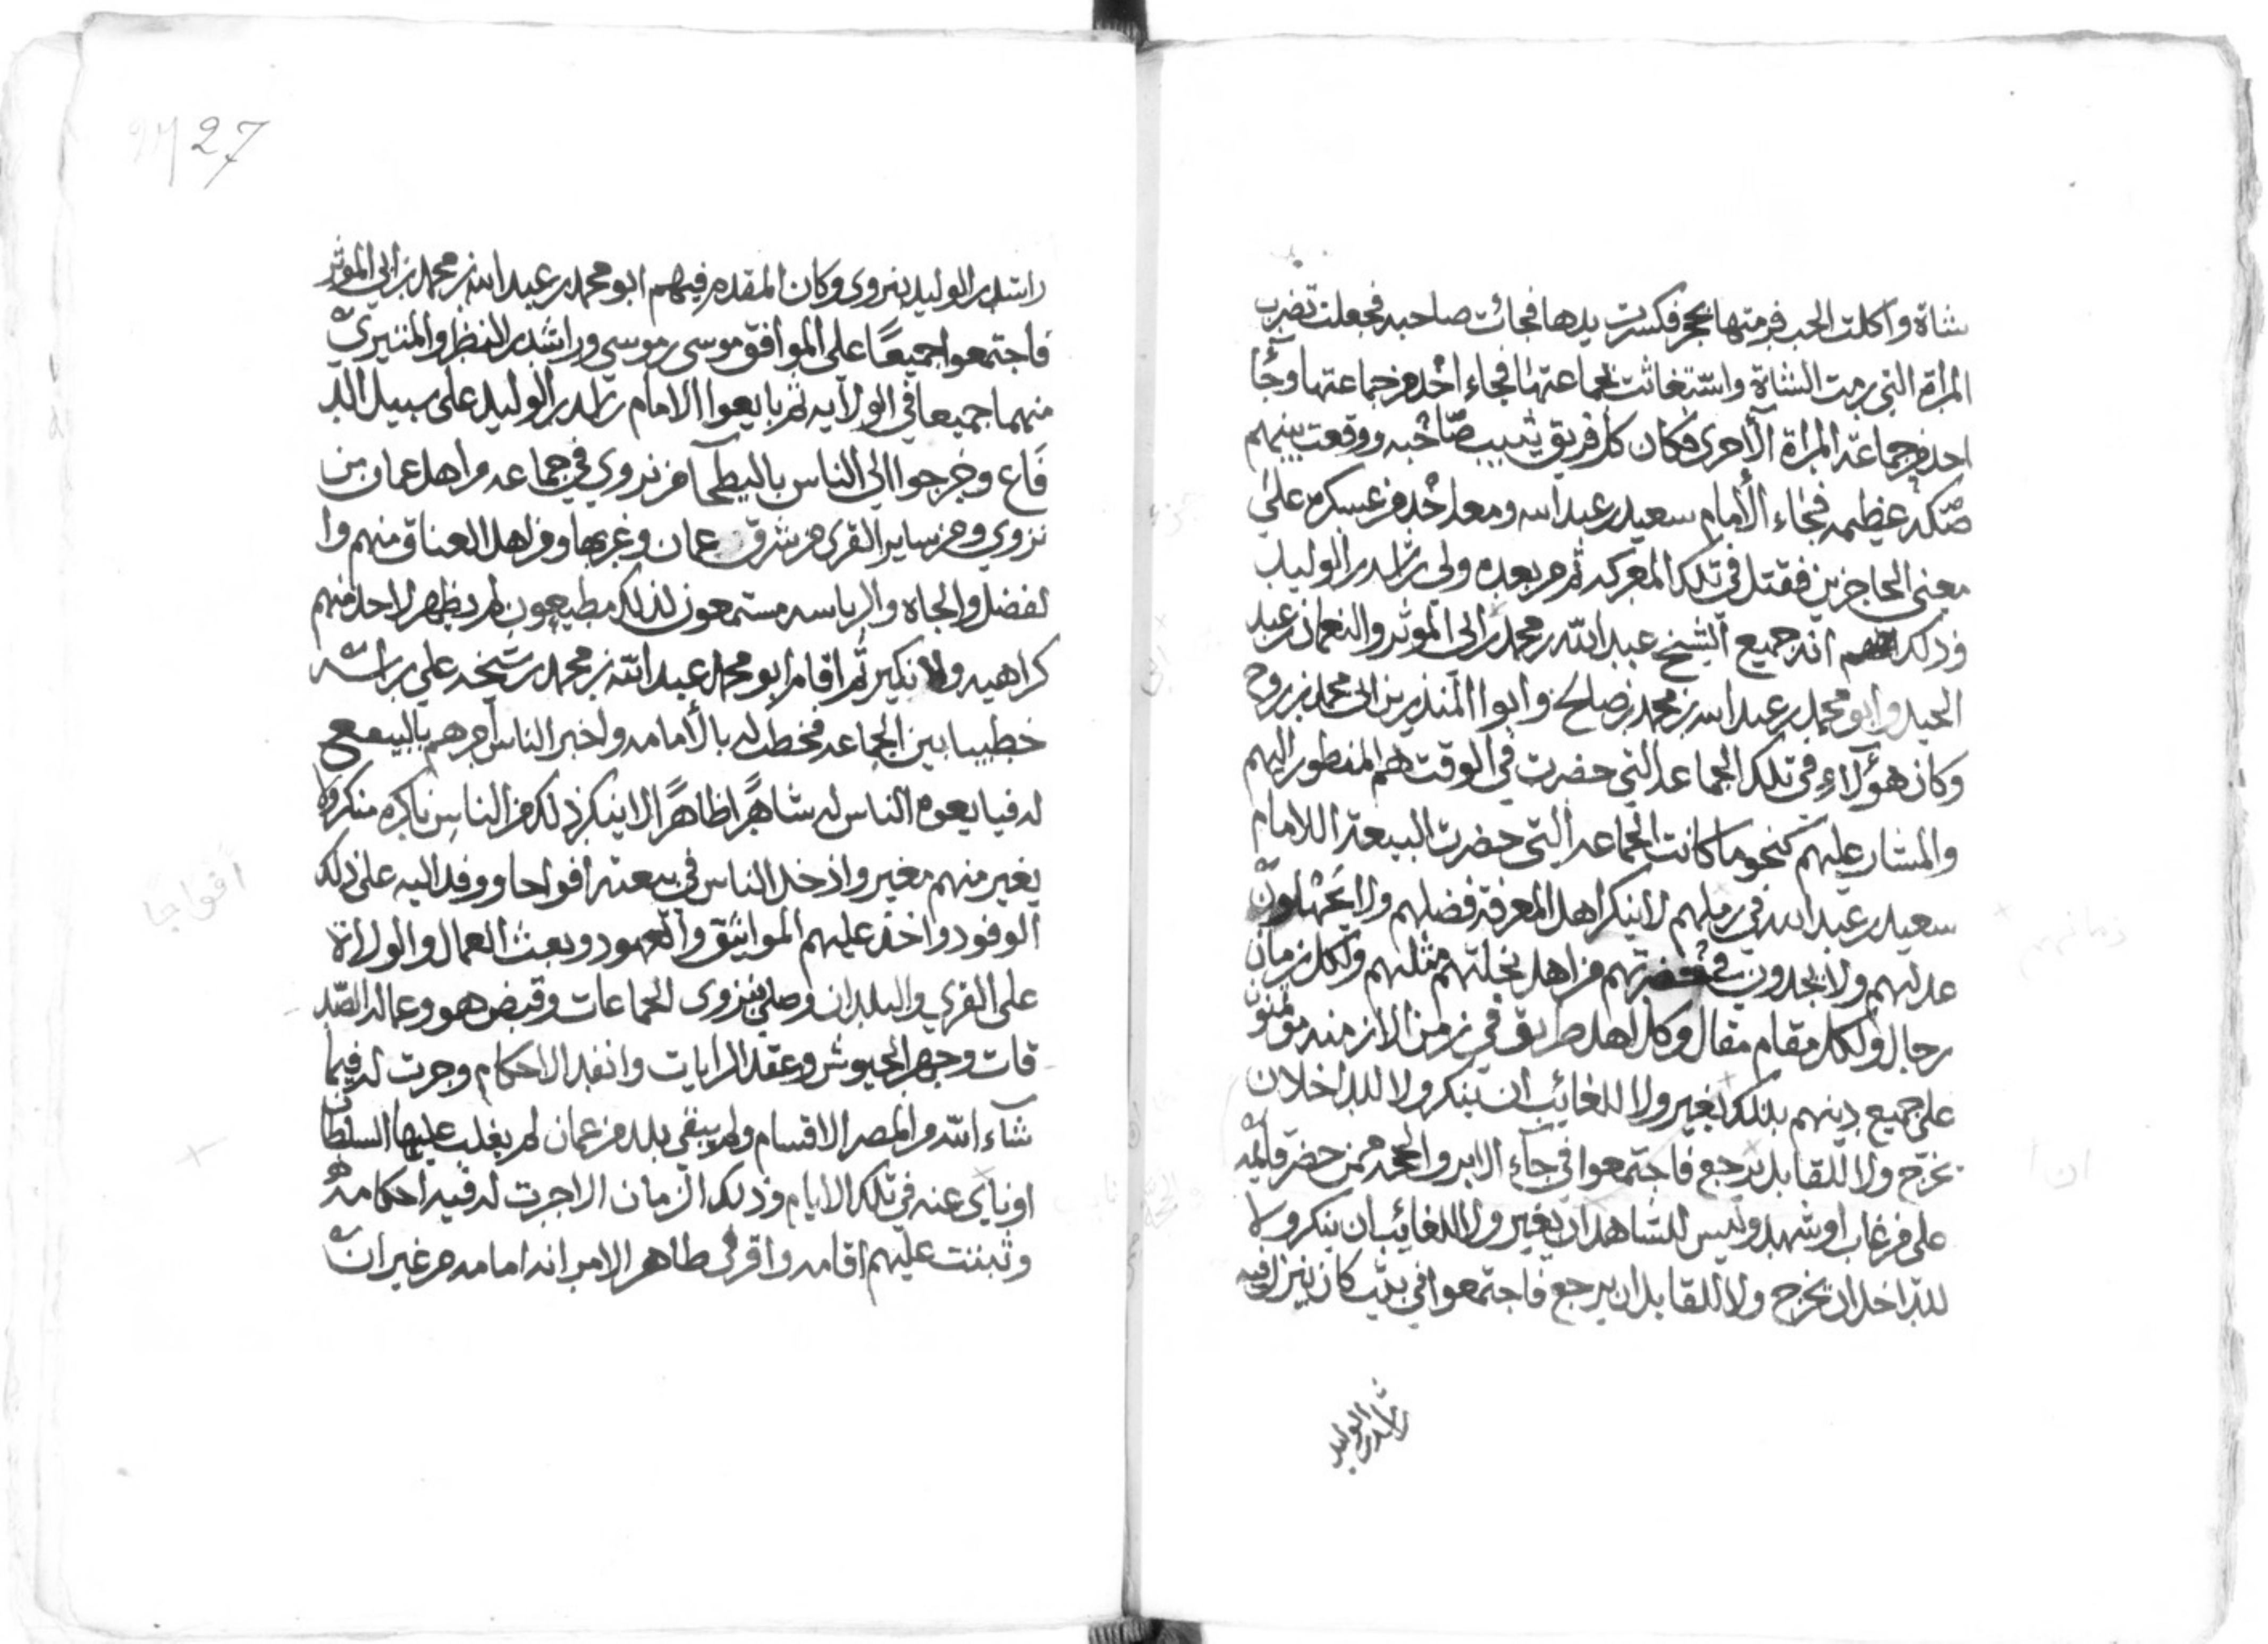 شاة واكلت الحب فرمتها بحجر فكسرت يدها فجائت صاحبه فجعلت تضرب
المراة التي رمت الشاة واستغاثت بجماعتها فجاء احد من جماعتها وجا
احد من جماعة المراة الاخرى فكان كل فريق يثيب صاحبه ووقعت بينهم
صكه عظيمه فجاء الامام سعيد بن عبد الله ومعه احد من عسكره على
معنى الحاجزين فقتل في تلك المعركه ثم من بعده ولي راشد بن الوليد
وذلك انه جميع الشيخ عبد الله بن محمد بن ابي الموثر والنعمان بن عبد
الحيد وابو محمد بن عبد الله بن محمد بن صالح وابوا المنذر بن ابي محمد بن روح
وكان هؤلاء في تلك الجماعه التي حضرت في الوقت هم المنظور اليهم
والمشار عليهم كنحو ما كانت الجماعه التي حضرت البيعة اللامام
سعيد بن عبد الله في زملهم لا ينكر اهل المعرفة فضلهم ولا يجهلون
عدلهم ولا يجدون في حضرتهم من اهل نحلتهم مثلهم ولكل زمان
رجال ولكل مقام مقال وكل اهل طريق في زمن الازمنه موتمنون
على جميع دينهم بذلك يغير ولا للغائب ان ينكر ولا للداخل ان
يخرج ولا للقابل يرجع فاجتمعوا في جآء الابر والحجه ممن حضر قائمه
على من غاب او شهد وليس للشاهد ان يغير ولا للغائب ان ينكر ولا
للداخل ان يخرج ولا للقابل ان يرجع فاجتمعوا في بيت كان ينزل فيه
راشد بن الوليد
27
راشد بن الوليد بنزوى وكان المقدم فيهم ابو محمد بن عبد الله بن محمد بن ابي الموثر
فاجتمعوا جميعًا على الموافق موسى بن موسى وراشد بن النظر والمتبري
منهما جميعا في الولايه ثم بايعوا الامام راشد بن الوليد على سبيل الد
فاع وخرجوا الي الناس بالبطحآ من نزوي في جماعه من اهل عمان من
نزوي ومن ساير القرى من شرق عمان وغربها ومن اهل العناق منهم وا
لفضل والجاه والرياسه مستمعون لذلك مطيعون لم يظهر لاحد منهم
كراهيه ولا نكير ثم اقام ابو محمد عبد الله بن محمد بن شيخه على راسه
خطيبا بين الجماعه فخطب له بالأمامه واخبر الناس امرهم بالبيعع
له فبايعوه الناس له شاهرًا ظاهرًا الا ينكر ذلك من الناس ناكره منكر ولا
يغير منهم مغير واذ خل الناس في بيعته افواحا ووفد اليه على ذلك
الوفود واخذ عليهم المواثيق والعهود وبعث العمال والولاة
على القري والبلدان وصلى بنزوى الجماعات وقبض هو وعماله الصد
قات وجهر الجيوش وعقد الرايات وانفد الاحكام وجرت له فيما
شآء الله من المصر الاقسام ولم يبقى بلد من عمان لم يغلب عليها السلطان
او ناى عنه في تلك الايام وذلك الزمان الا جرت له فيه احكامه
وثبتت عليهم اقامه واقر في ظاهر الامر انه امامه من غير ان
افواجا